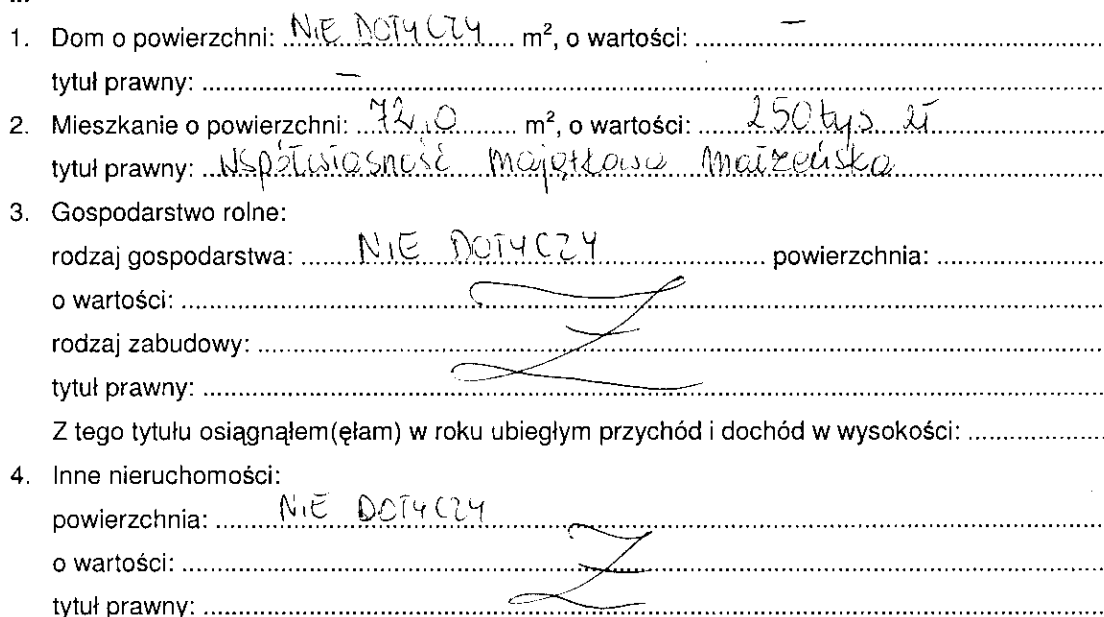 1. Dom o powierzchni: NIE DOTYCZY m², o wartości: –
tytuł prawny: –
2. Mieszkanie o powierzchni: 72,0 m², o wartości: 250 tys zł
tytuł prawny: Współwłasność majątkowa małżeńska
3. Gospodarstwo rolne:
rodzaj gospodarstwa: NIE DOTYCZY powierzchnia:
o wartości:
rodzaj zabudowy:
tytuł prawny:
Z tego tytułu osiągnąłem(ęłam) w roku ubiegłym przychód i dochód w wysokości:
4. Inne nieruchomości:
powierzchnia: NIE DOTYCZY
o wartości:
tytuł prawny: